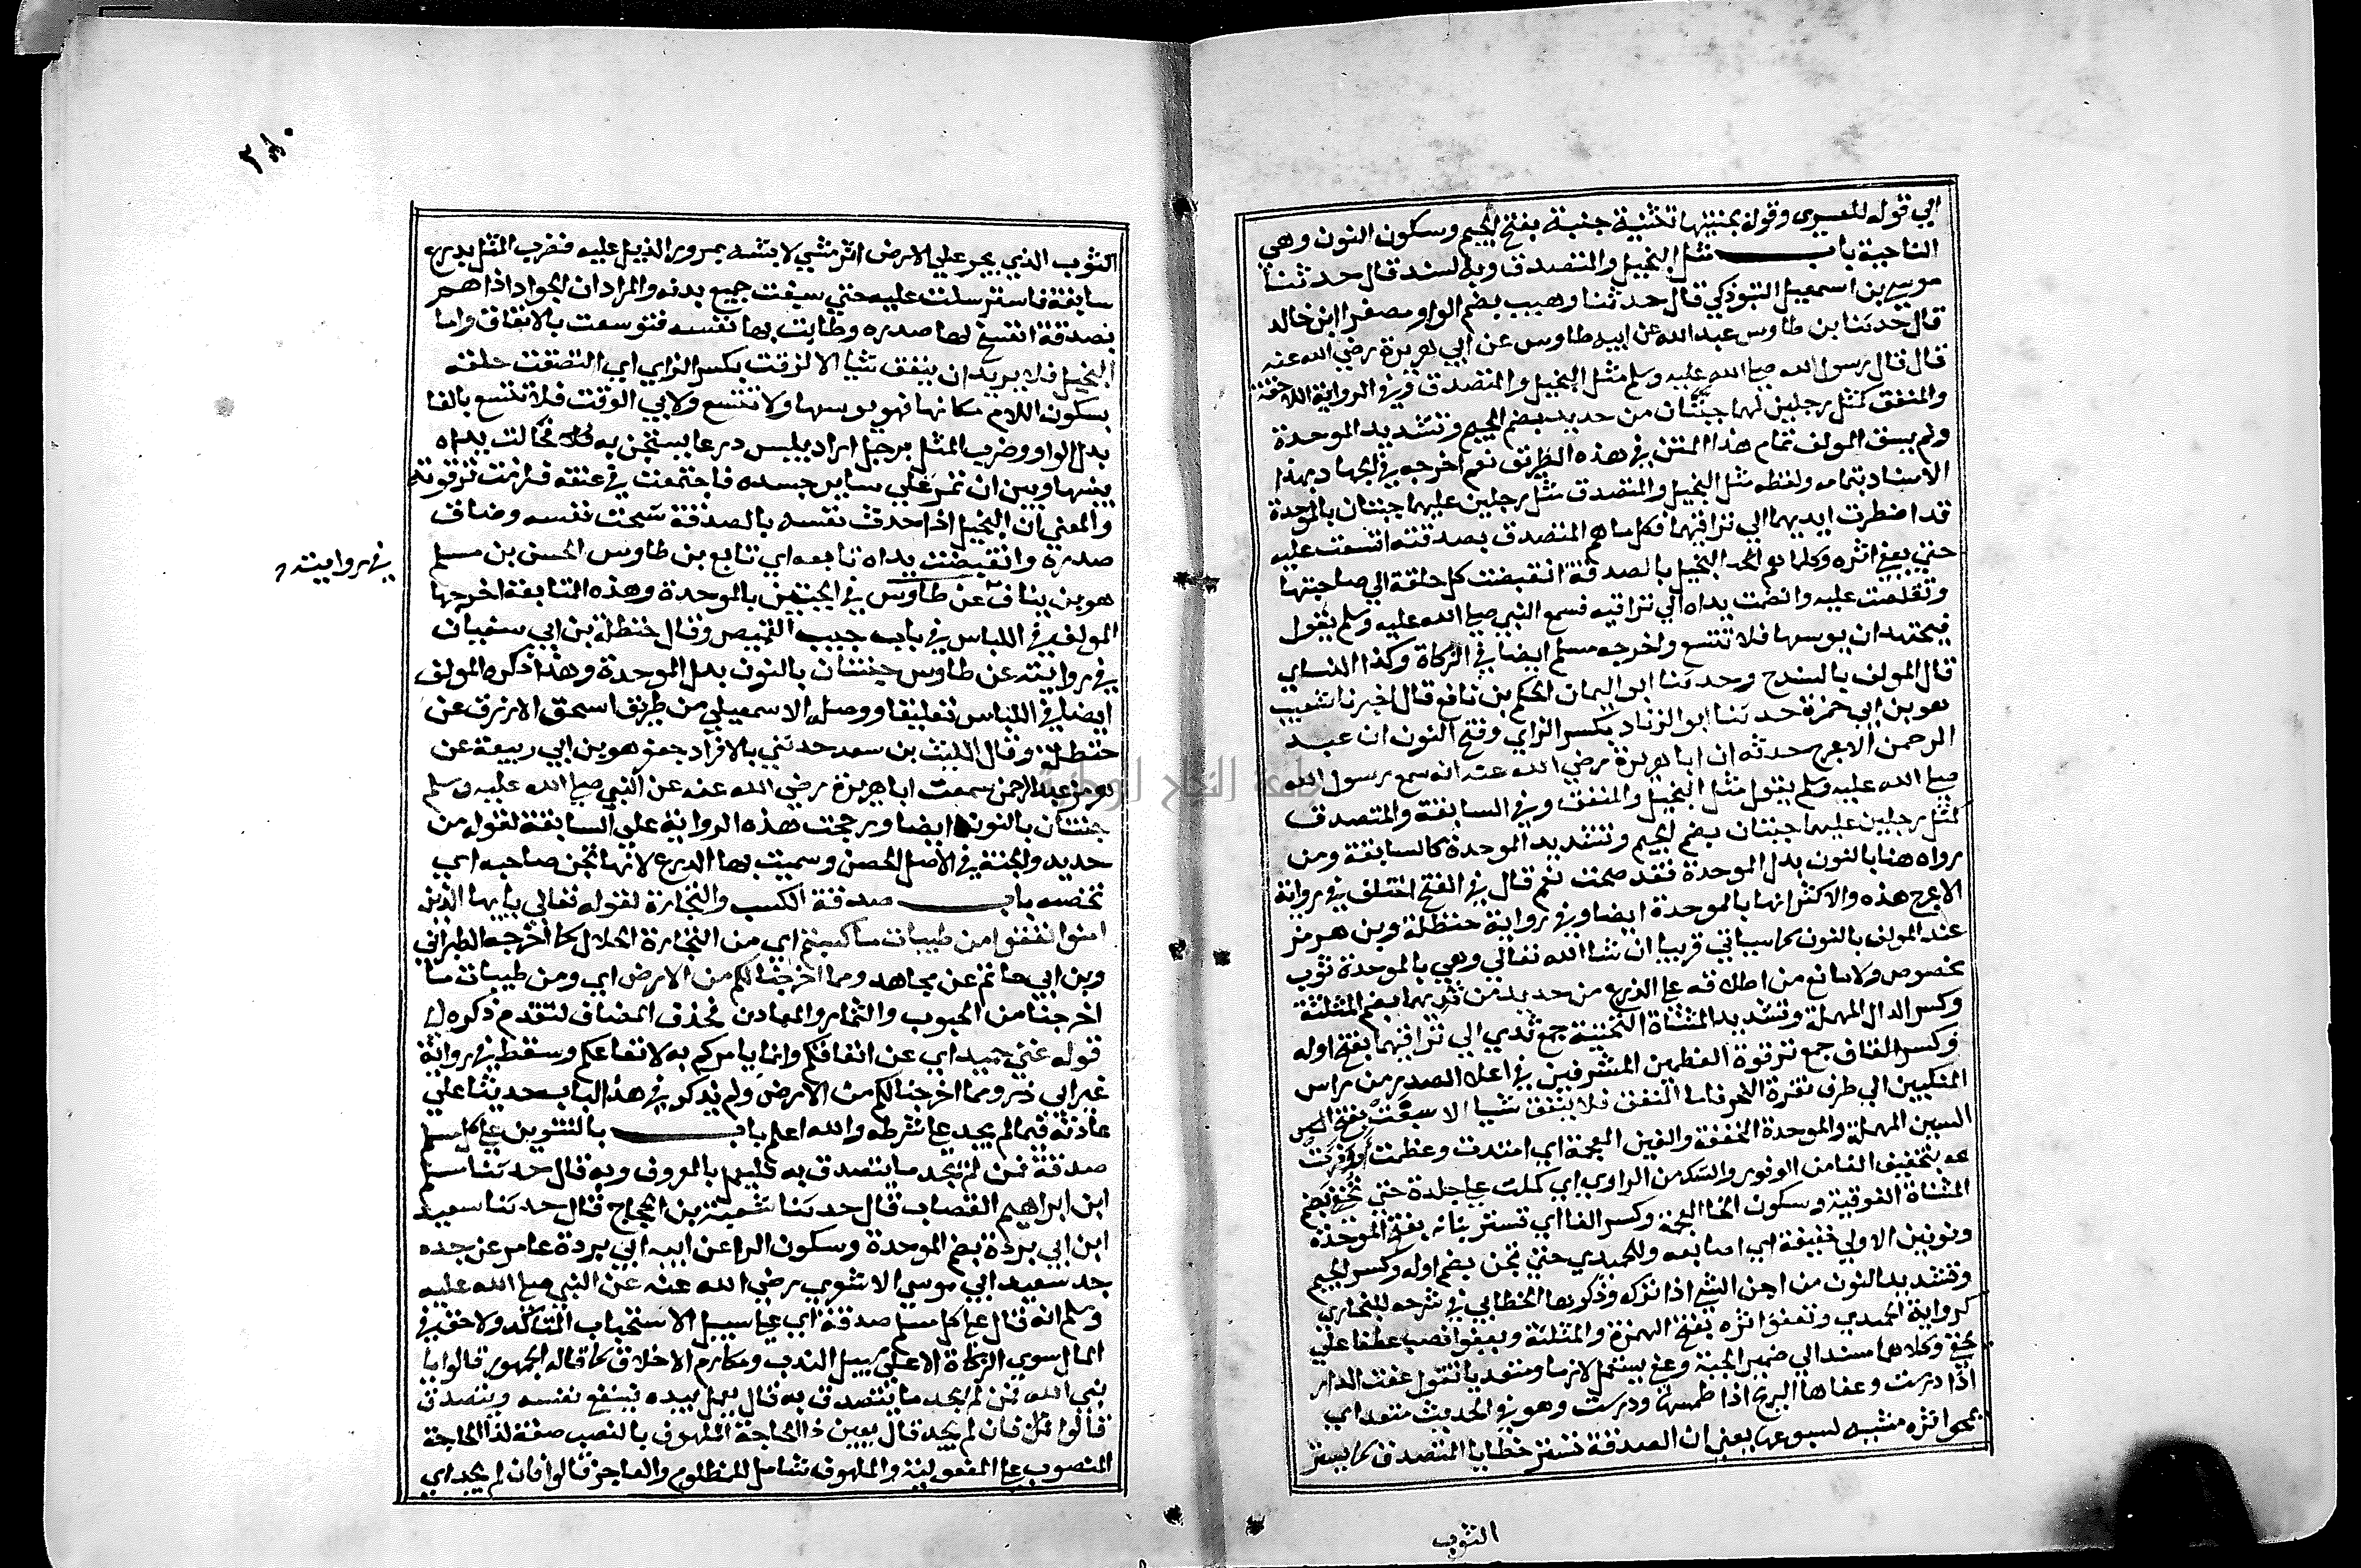 الي قوله للعسرى وقوله بجنبتيها تثنية جنبة بفتح الجيم وسكون النون وهي
الناحية باب مثل البخيل والمتصدق وبالسند قال حدثنا
موسي بن اسمعيل التبوذكي قال حدثنا وهيب بضم الواو مصغرا ابن خالد
قال حدثنا بن طاوس عبد الله عن ابيه طاوس عن ابي هريرة رضي الله عنه
قال قال رسول الله صلي الله عليه وسلم مثل البخيل والمتصدق وفي الرواية اللاحقة
والمنفق كمثل رجلين لهما جبتان من حديد بضم الجيم وتشديد الموحدة
ولم يسق المولف تمام هذا المتن في هذه الطريق نعم اخرجه في الجهاد بهذا
الاسناد بتمامه ولفظه مثل البخيل والمتصدق مثل رجلين عليهما جبتان بالموحدة
قد اضطرت ايديهما الي تراقيهما فكل ما هم المتصدق بصدقته اتسعت عليه
حتي يعفي اثره وكلما هم البخيل بالصدقة انقبضت كل حلقة الي صاحبتها
وتقلصت عليه وانضمت يداه الي تراقيه فسمع النبي صلي الله عليه وسلم يقول
فيجتهد ان يوسعها فلا تتسع واخرجه مسلم ايضا في الزكاة وكذا النساي
قال المولف بالسند ح وحدثنا ابو اليمان الحكم بن نافع قال اخبرنا شعيب
هو بن ابي حمزة حدثنا ابو الزناد بكسر الزاي وفتح النون ان عبد
الرحمن الاعرج حدثه ان ابا هريرة رضي الله عنه انه سمع رسول الله
صلي الله عليه وسلم يقول مثل البخيل والمنفق وفي السابقة والمتصدق
كمثل رجلين عليهما جبتان بضم الجيم وتشديد الموحدة كالسابقة ومن
رواه هنا بالنون بدل الموحدة فقد صحف نعم قال في الفتح اختلف في رواية
الاعرج هذه والاكثر انها بالموحدة ايضا وفي رواية حنظلة وبن هرمز
عند المولف بالنون كما سياتي قريبا ان شا الله تعالي وهي بالموحدة ثوب
مخصوص ولا مانع من اطلاقه علي الدرع من حديد من ثديهما بضم المثلثة
وكسر الدال المهملة وتشديد المثناة التحتية جمع ثدي الي تراقيهما بفتح اوله
وكسر القاف جمع ترقوة العظمين المشرفين في اعلا الصدر من راس
المنكبين الي طرف ثغرة النحر فاما المنفق فلا ينفق شيا الا سبغت بفتح
السين المهملة والموحدة المخففة والغين المعجمة اي امتدت وعظمت او وفرت
بتخفيف الفا من الوفور والشك من الراوي اي كملت علي جلده حتي تخفي بضم
المثناة الفوقية وسكون الخا المعجمة وكسر الفا اي تستر بنانه بفتح الموحدة
ونونين الاولي خفيفة اي اصابعه وللحميدي حتي تجن بضم اوله وكسر الجيم
وتشديد النون من اجن الشي اذا ستره وذكرها الخطابي في شرحه للبخاري
كرواية الحميدي وتعفو اثره بفتح الهمزة والمثلثة ويعفو نصب عطفا علي
تخفي وكلاهما مسند الي ضمير الجبة وعفي يستعمل لازما ومتعديا تقول عفت الدار
اذا درست وعفاها الريح اذا طمسها ودرست وهو في الحديث متعد اي
يمحوا اثره مشيه لسبوغها يعني ان الصدقة تستر خطايا المتصدق كما يستر
الثوب
٢٨٠
الثوب الذي يجر علي الارض اثر مشي لابسه بمرور الذيل عليه فضرب المثل بدرع
سابغة فاسترسلت عليه حتي سبغت جميع بدنه والمراد ان الجواد اذا هم
بصدقة انفسح لها صدره وطابت بها نفسه فتوسعت بالانفاق واما
البخيل فلا يريد ان ينفق شيا الا لزقت بكسر الزاي اي التصقت حلقة
بسكون اللام مكانها فهو يوسعها ولا تتسع ولابي الوقت فلا تتسع بالفا
بدل الواو وضرب المثل برجل اراد يلبس درعا يستجن به فحالت يداه
بينها وبين ان تمر علي ساير جسده فاجتمعت في عنقه فلزمت ترقوته
والمعني ان البخيل اذا حدث نفسه بالصدقة شحت نفسه وضاق
صدره وانقبضت يداه تابعه اي تابع بن طاوس الحسن بن مسلم
في روايته
هو بن يناق عن طاوس في الجبتين بالموحدة وهذه المتابعة اخرجها
المولف في اللباس في باب جيب القميص وقال حنظلة بن ابي سفيان
في روايته عن طاوس جنتان بالنون بدل الموحدة وهذا ذكره المولف
ايضا في اللباس تعليقا ووصله الاسمعيلي من طريق اسحق الازرق عن
حنظلة وقال الليث بن سعد حدثني بالافراد جعفر هو بن ابي ربيعة عن
بن هرمز عبد الرحمن سمعت ابا هريرة رضي الله عنه عن النبي صلي الله عليه وسلم
جنتان بالنون ايضا ورجحت هذه الرواية علي السابقة لقوله من
حديد والجنة في الاصل الحصن وسميت بها الدرع لانها تجن صاحبها اي
تحصنه باب صدقة الكسب والتجارة لقوله تعالي يايها الذين
امنوا انفقوا من طيبات ما كسبتم اي من التجارة الحلال كما اخرجه الطبراني
وبن ابي حاتم عن مجاهد ومما اخرجنا لكم من الارض اي ومن طيبات ما
اخرجنا من الحبوب والثمار والمعادن فحذف المضاف لتقدم ذكره الي
قوله غني حميد اي عن انفاقكم وانما يامركم به لانتفاعكم وسقط في رواية
غير ابي ذر ومما اخرجنا لكم من الارض ولم يذكر في هذا الباب حديثا علي
عادته فيما لم يجد علي شرطه والله اعلم باب بالتنوين علي كل مسلم
صدقة فمن لم يجد ما يتصدق به فليعمل بالمعروف وبه قال حدثنا مسلم
ابن ابراهيم القصاب قال حدثنا شعبة بن الحجاج قال حدثنا سعيد
ابن ابي بردة بضم الموحدة وسكون الرا عن ابيه ابي بردة عامر عن جده
جد سعيد ابي موسي الاشعري رضي الله عنه عن النبي صلي الله عليه
وسلم انه قال علي كل مسلم صدقة اي علي سبيل الاستحباب المتاكد ولا حق في
المال سوي الزكاة الا علي سبيل الندب ومكارم الاخلاق كما قاله الجمهور قالوا يا
نبي الله فمن لم يجد ما يتصدق به قال يعمل بيده فينفع نفسه ويتصدق
قالوا فان لم يجد قال يعين ذا الحاجة الملهوف بالنصب صفة لذا الحاجة
المنصوب علي المفعولية والملهوف شامل للمظلوم والعاجز قالوا فان لم يجد اي
جامعة النجاح الوطنية